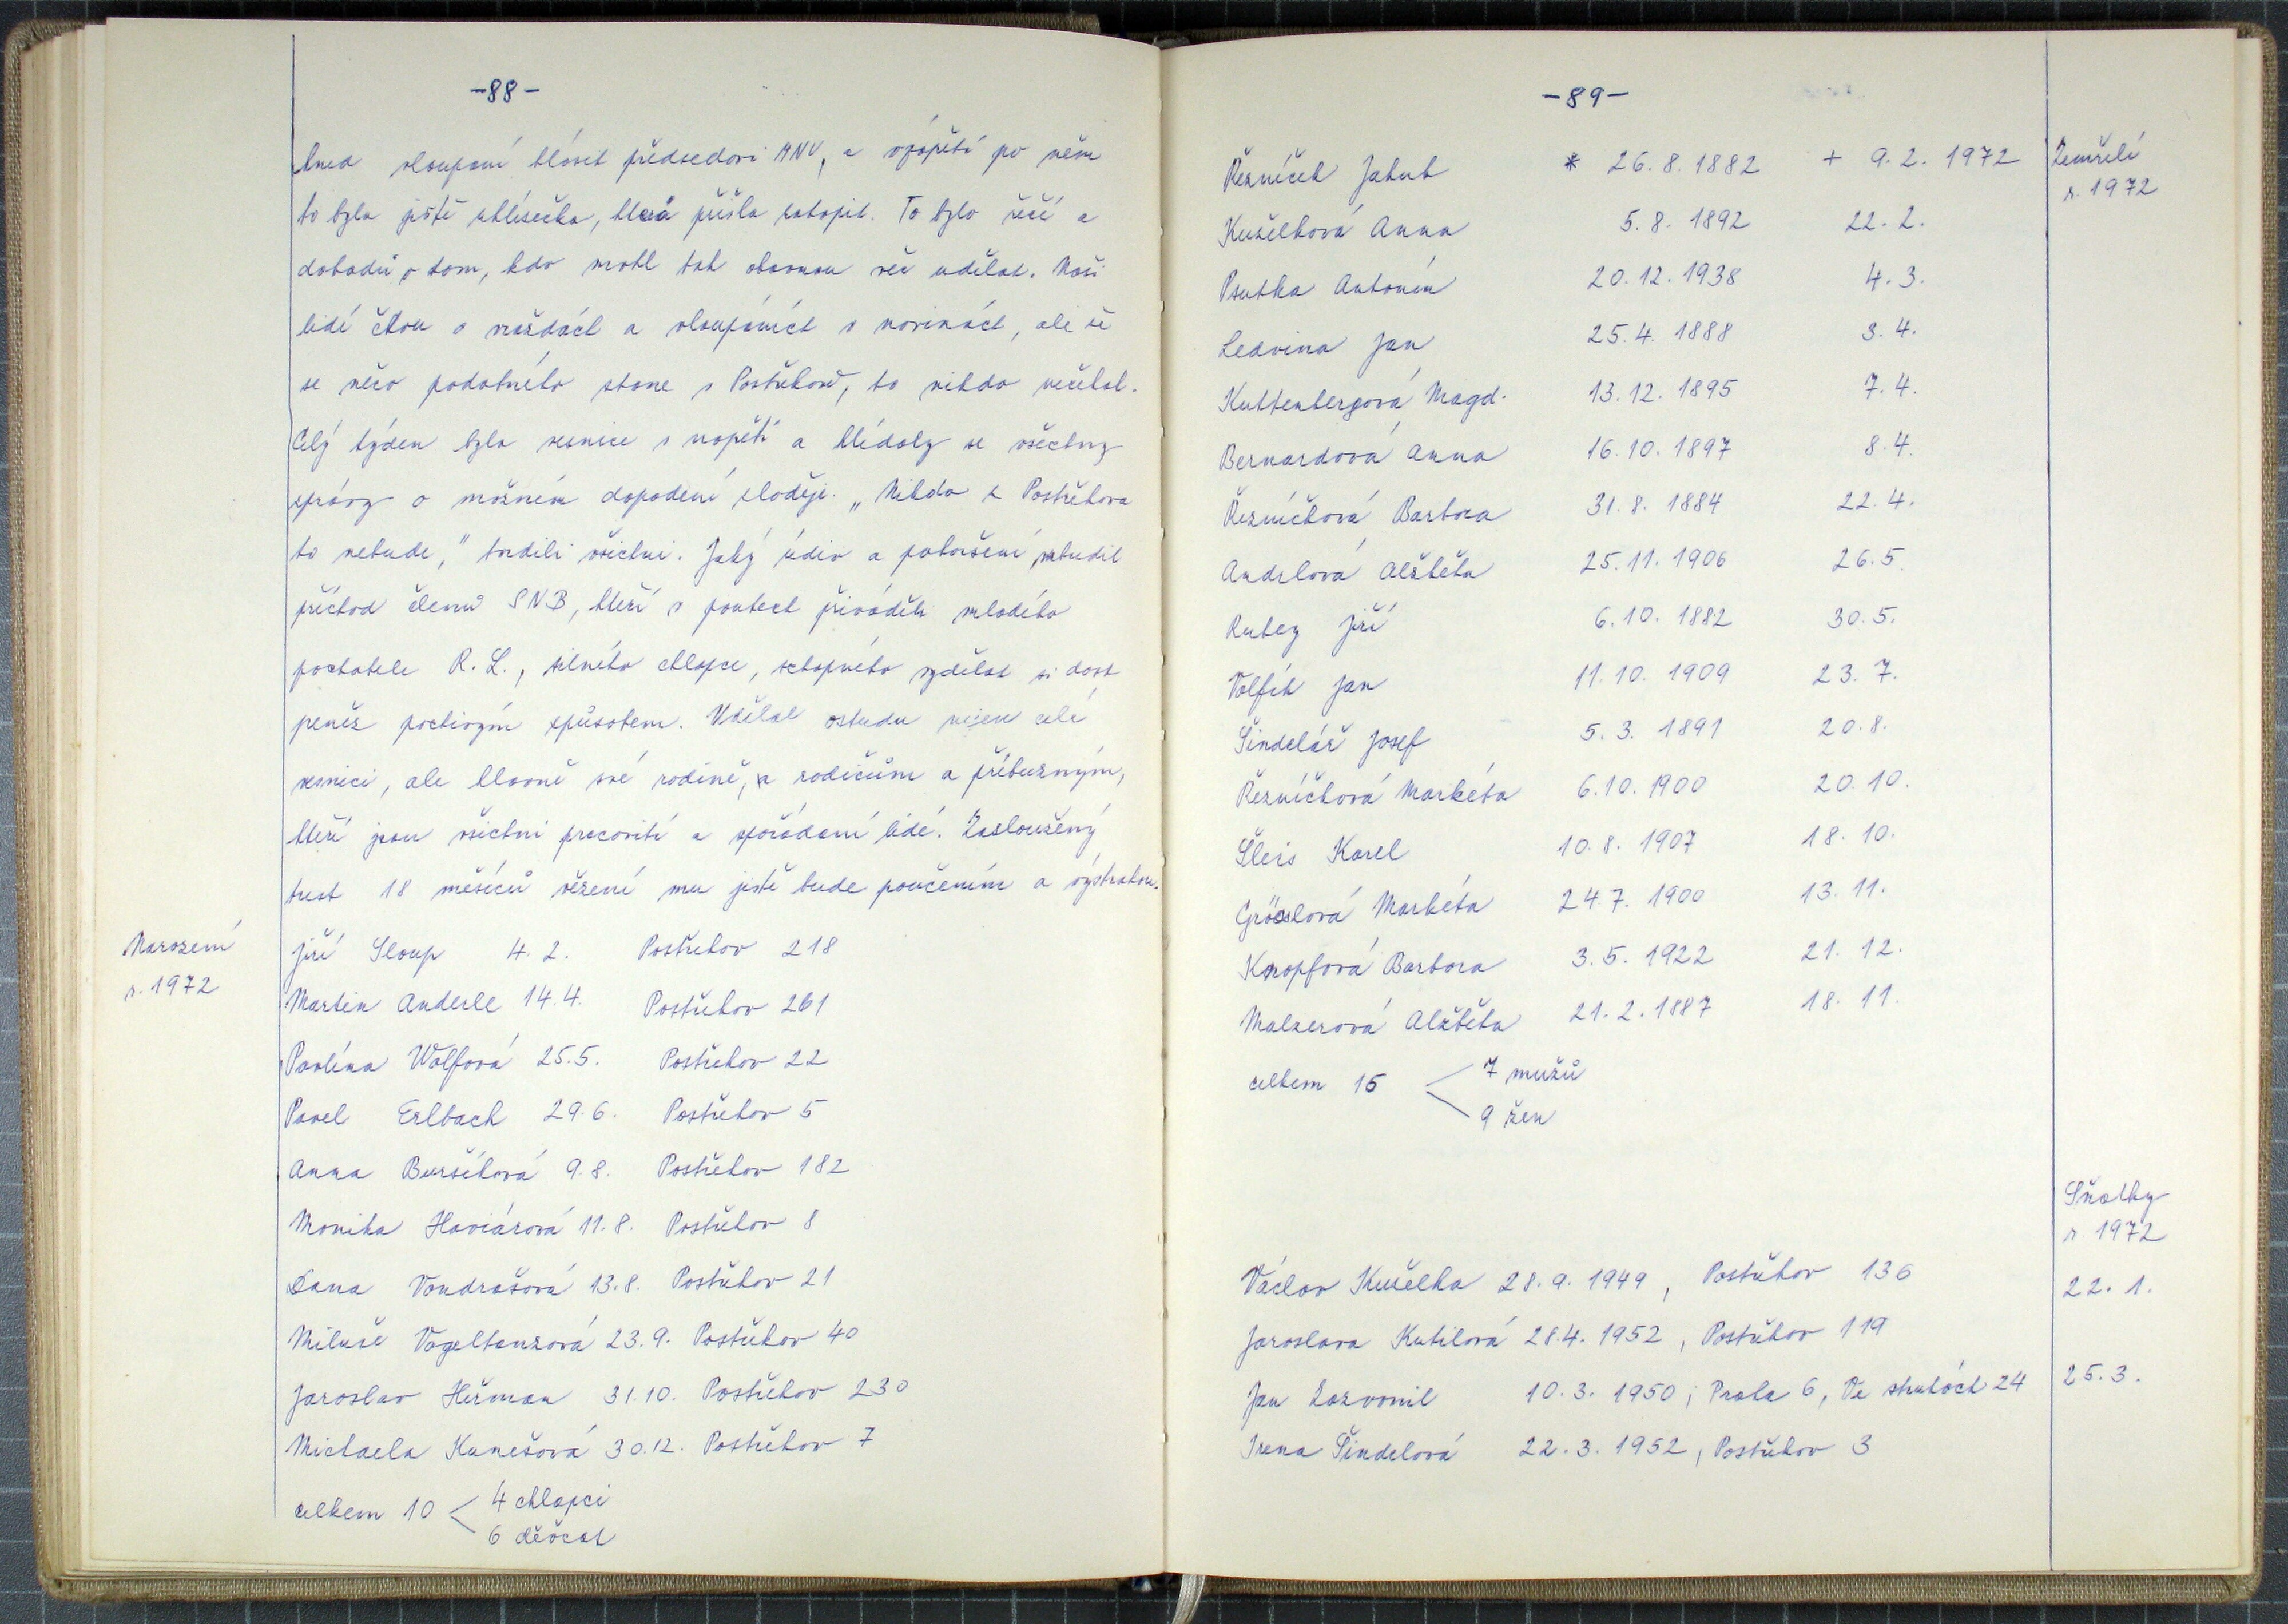 -88-
hned vloupaní hlásit předsedovi MNV, a vzápětí po něm
to byla jistě uklízečka, která přišla zatopit. To bylo řečí a
dohadů o tom, kdo mohl tak ohavnou věc udělat. Naši
lidé čtou o vraždách a vloupáních v novinách, ale že
se něco podobného stane v Postřekově, to nikdo nečekal.
Celý týden byla vesnice v napětí a hlídaly se všechny
zprávy o možném dopadení zloděje. „Nikdo z Postřekova
to nebude," tvrdili všichni. Jaký údiv a pohoršení vzbudil
příchod členů SNB, kteří v poutech přiváděli mladého
pachatele R. L., silného chlapce, schopného vydělat si dost
peněz poctivým způsobem. Udělal ostudu nejen celé
vesnici, ale hlavně své rodině, a rodičům a příbuzným,
kteří jsou všichni pracovití a spořádaní lidé. Zasloužený
trest 18 měsíců vězení mu jistě bude poučením a výstrahou.
Narození
r. 1972
Jiří Sloup 4. 2. Postřekov 218
Martin Anderle 14.4. Postřekov 261
Pavlína Wolfová 25.5. Postřekov 22
Pavel Erlbach 29.6. Postřekov 5
Anna Buršíková 9.8. Postřekov 182
Monika Haviárová 11.8. Postřekov 8
Dana Vondrašová 13.8. Postřekov 21
Miluše Vogeltanzová 23.9. Postřekov 40
Jaroslav Heřman 31.10. Postřekov 230
Michaela Kunešová 30.12. Postřekov 7
celkem 10 < 4 chlapci
6 děvčat
-89-
Zemřelí
r. 1972
Řezníček Jakub * 26. 8. 1882 + 9. 2. 1972
Kuželková Anna 5. 8. 1892 22. 2.
Psutka Antonín 20. 12. 1938 4. 3.
Ledvina Jan 25. 4. 1888 3. 4.
Kuttenbergová Magd. 13. 12. 1895 7. 4.
Bernardová Anna 16. 10. 1897 8. 4.
Řezníčková Barbora 31. 8. 1884 22. 4.
Andrlová Alžběta 25. 11. 1906 26. 5.
Rubey Jiří 6. 10. 1882 30. 5.
Volfík Jan 11. 10. 1909 23. 7.
Šindelář Josef 5. 3. 1891 20. 8.
Řezníčková Markéta 6. 10. 1900 20. 10.
Šleis Karel 10. 8. 1907 18. 10.
Markéta 24. 7. 1900 13. 11.
Knopfová Barbora 3. 5. 1922 21. 12.
Malzerová Alžběta 21. 2. 1887 18. 11.
celkem 16 < 7 mužů
9 žen
Sňatky
r. 1972
Václav Kuželka 28. 9. 1949, Postřekov 136 22. 1.
Jaroslava Kutilová 28.4. 1952, Postřekov 119
Jan Zazvonil 10. 3. 1950, Praha 6, Ve struhách 24 25. 3.
Irena Šindelová 22. 3. 1952, Postřekov 3